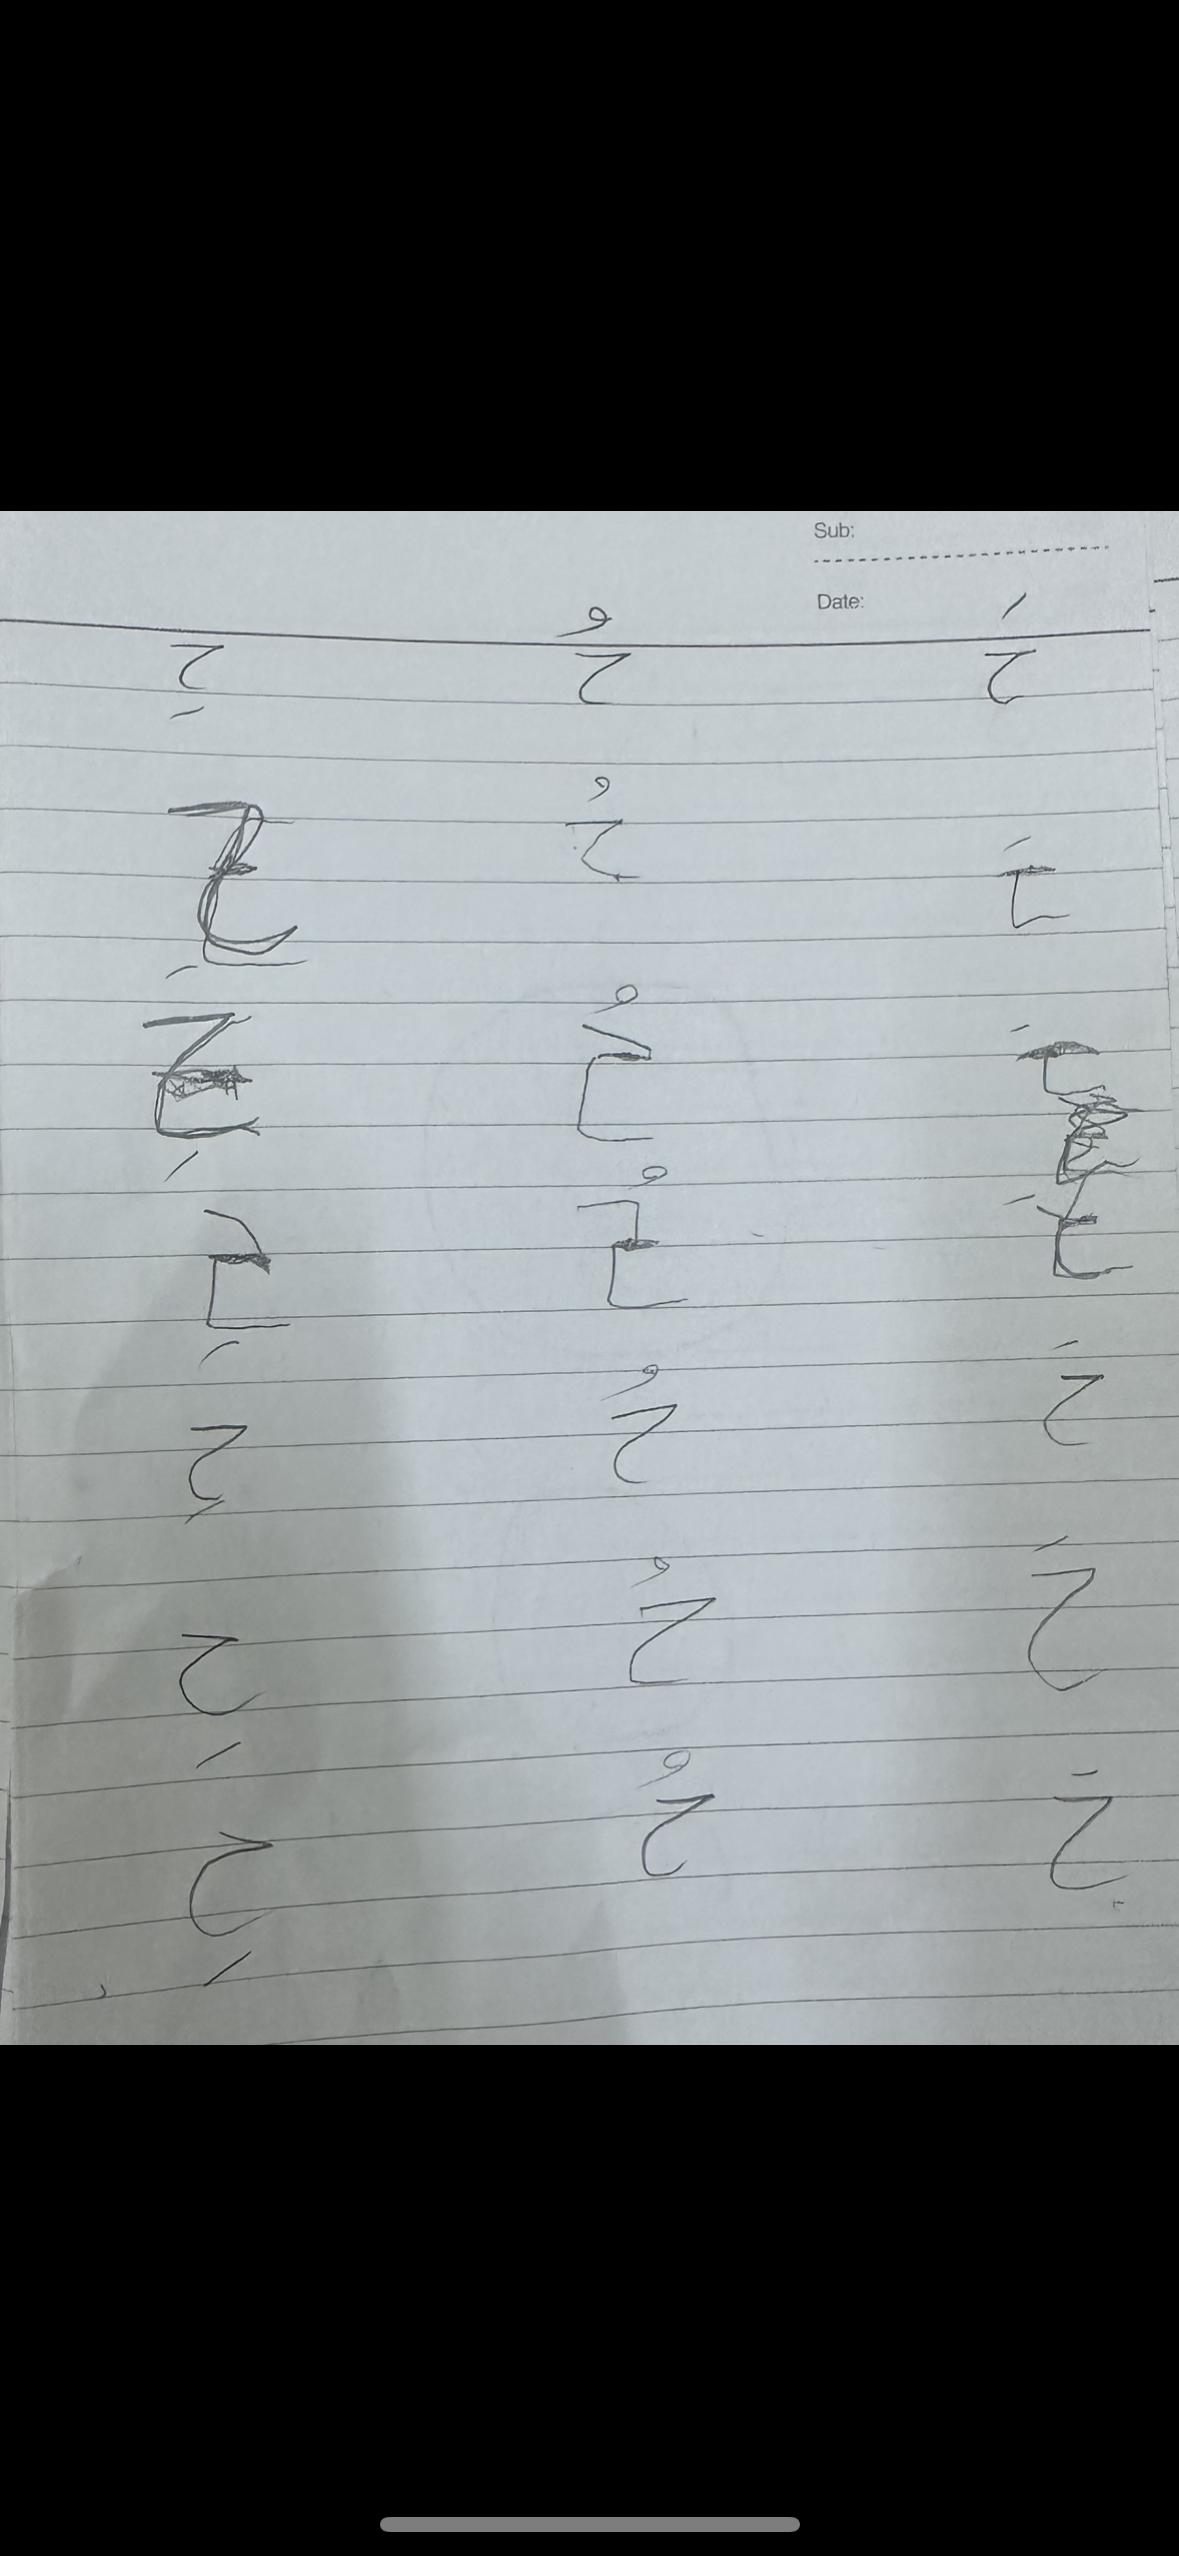 Sub:
Date:
حَ حُ حِ
حَ حُ حِ
حَ حُ حِ
حَ حُ حِ
حَ حُ حِ
حَ حُ حِ
حَ حُ حِ